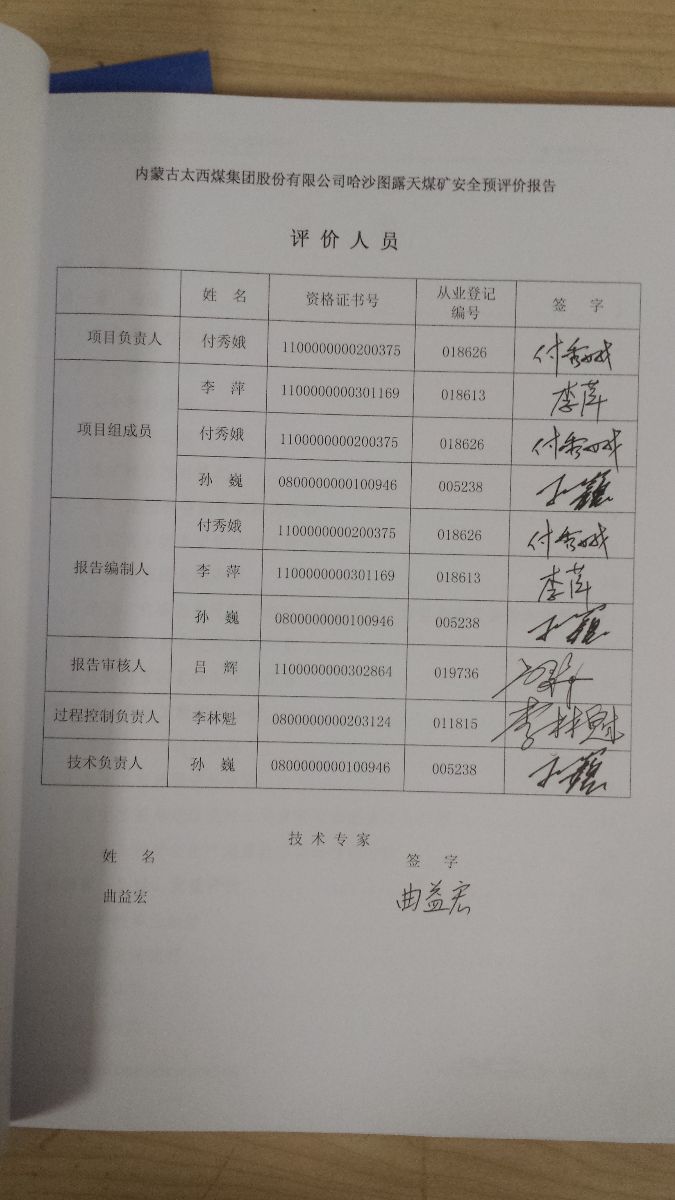 内蒙古太西煤集团股份有限公司哈沙图露天煤矿安全预评价报告
评 价 人 员
姓 名 资格证书号 从业登记编号 签 字
项目负责人 付秀娥 1100000000200375 018626 付秀娥
项目组成员 李 萍 1100000000301169 018613 李萍
付秀娥 1100000000200375 018626 付秀娥
孙 巍 0800000000100946 005238 孙巍
报告编制人 付秀娥 1100000000200375 018626 付秀娥
李 萍 1100000000301169 018613 李萍
孙 巍 0800000000100946 005238 孙巍
报告审核人 吕 辉 1100000000302864 019736
过程控制负责人 李林魁 0800000000203124 011815 李林魁
技术负责人 孙 巍 0800000000100946 005238 孙巍
技 术 专 家
姓 名 签 字
曲益宏 曲益宏